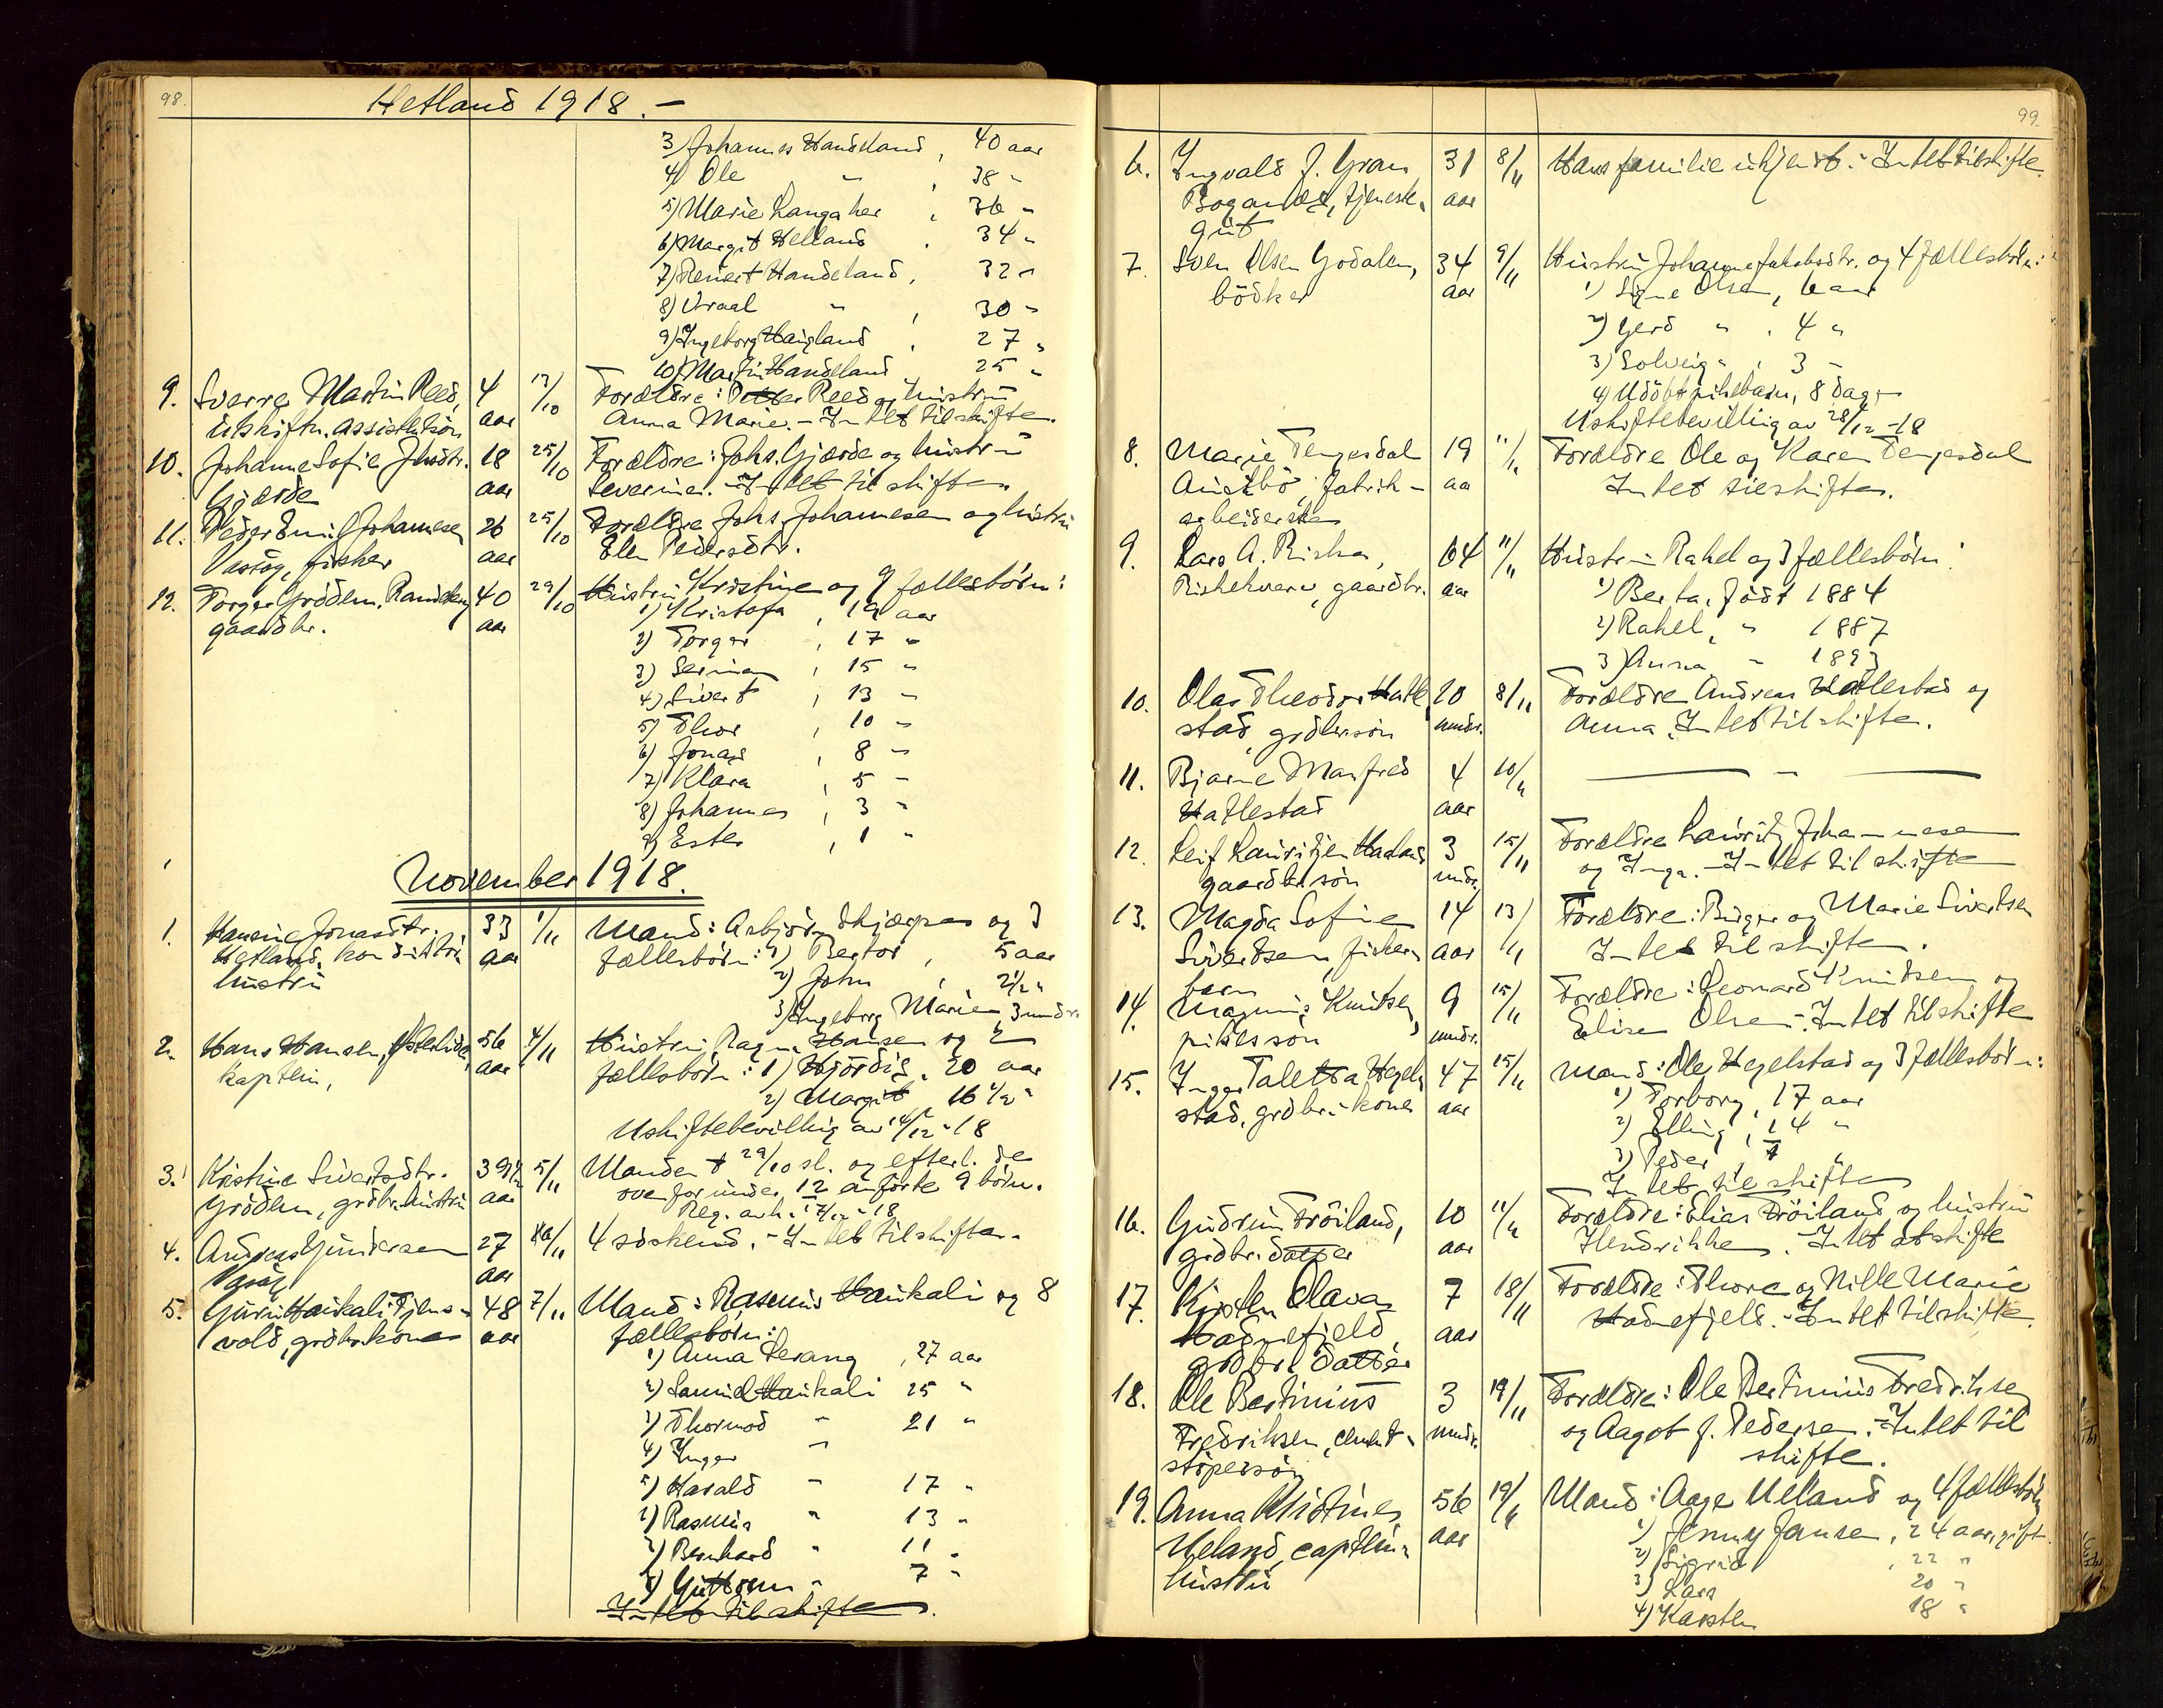 98.
Hetland 1918. –
3) Johannes Handeland, 40 aar
4) Ole " , 38 "
5) Marie Langaker , 36 "
6) Margit Helland . 34 "
7) Reinert Handeland, 32 "
8) Vraal " , 30 "
9) Ingeborg Haugland , 27 "
10) Martin Handeland 25 "
9. Sverre Martin Reed, 4 17/10 Forældre: Petter Reed og hustru
utskiftn. assistentsön aar Anna Marie. – Intet til skifte.
10. Johanne Sofie Jhsdtr. 18 25/10 Forældre: Johs. Gjærde og hustru
Gjærde aar Severine. – Intet til skifte.
11. Peder Emil Johannesen 26 25/10 Forældre Johs. Johannesen og hustru
fisker aar Elen Pedersdtr.
12. Torger Gröden, 40 29/10 Hustru Kristine og 9 fællesbörn:
gaardbr. aar 1) Kristofa , 19 aar
2) Torger , 17 "
3) , 15 "
4) Sivert , 13 "
5) Thor , 10 "
6) Jonas , 8 "
7) Klara , 5 "
8) Johannes , 3 "
9) Ester , 1 "
November 1918.
1. Hansine Jonasdtr. 33 1/11 Mand: Asbjörn Skjæpas og 3
Hetland, konduktör aar fællesbörn: 1) Bertor , 5 aar
hustru 2) John , 2½ "
3) Ingeborg Marie, 3 mndr.
2. Hans Hansen, 56 4/11 Hustru Ragna Hansen og 2
kaptein, aar fællesbörn: 1) Hjördis, 20 aar
2) Margit 16½ "
Uskiftebevilling av 14/12 - 18
3. Kristine Sivertsdtr. 39½ 5/11 Manden † 29/10 sl. og efterl. de
Gröden, grdbr. hustru aar ovenfor under 12 anförte 9 börn.
Reg. avh. 17/12 - 18
4. Andreas Gundersen 27 /11 4 söskend. – Intet til skifte.
aar
5. Guri Haukali, Tjens- 48 7/11 Mand: Rasmus Haukali og 8
vold, grdbr.kone aar fællesbörn:
1) Anna Lerang , 27 aar
2) Samuel Haukali 25 "
3) Thormod " 21 "
4) Inger "
5) Harald " 17 "
) Rasmus " 13 "
) Bernhard " 11 "
8) Guttorm " 7 "
Intet til skifte.
99.
6. Ingvald J. Gram 31 8/11 Hans familie ukjendt. – Intet til skifte.
Bogandes, tjeneste- aar
gut
7. Sven Olsen Godalen, 34 9/11 Hustru Johanne Jakobsdtr. og 4 fællesbörn:
bödker aar 1) Signe Olsen, 6 aar
2) Gerd " , 4 "
3) Solveig " , 3 "
4) Udöbt pikebarn, 8 dage
Uskiftebevilling av 28/12 - 18
8. Marie Tengesdal 19 11/11 Forældre Ole og Karen Tengesdal
Austbö, fabrik- aar Intet til skifte.
arbeiderske
9. Lars A. Riska, 64 11/11 Hustru Rahel og 3 fællesbörn:
Riskekvern, gaardbr. aar 1) Berta, född 1884
2) Rahel, " 1887
3) Anna " 1893
10. Olav Theodor Hatle- 20 8/11 Forældre Andreas Hatlestad og
stad, grdbr.sön mndr. Anna. Intet til skifte.
11. Bjarne Manfred 4 10/11 — " —
Hatlestad aar
12. Leif Lauritzen Haaland 3 15/11 Forældre Lauritz Johannesen
gaardbr sön mndr. og Inga. – Intet til skifte
13. Magda Sofie 14 13/11 Forældre: Birger og Marie Sivertsen
Sivertsen, fisker- aar Intet til skifte.
barn
14. Magnus Knutsen, 9 15/11 Forældre: Leonard Knudsen og
pikesson mndr. Elise Olsen – Intet til skifte
15. Inger Taletta Hegel- 47 15/11 Mand: Ole Hegelstad og 3 fællesbörn:
stad, grdbr.-kone aar 1) Torborg, 17 aar
2) Elling, 14 "
3) Peder, 7 "
Intet til skifte
16. Gudrun Fröiland, 10 11/11 Forældre: Elias Fröiland og hustru
grdbr. datter aar Hendrikke. Intet at skifte
17. Kirsten Olava 7 18/11 Forældre: Thore og Nille Marie
Hadnefjeld, aar Hadnefjeld. – Intet til skifte.
grdbr. datter
18. Ole Bertinius 3 19/11 Forældre: Ole Bertinius Fredriksen
Fredriksen, cement- mndr. og Aagot J. Pedersen. – Intet til
stöpersön skifte.
19. Anna Kristine 56 19/11 Mand: Aage Ueland og 4 fællesbörn
Ueland, captein- aar 1) Jenny Jansen, 24 aar, gift.
hustru 2) Sigrid , 22 "
3) Lars 20 "
4) Karsten 18 "